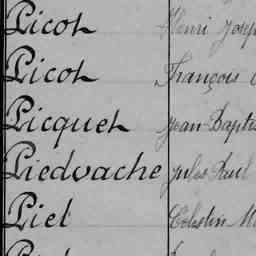 Picot Henri Josep
Picot François
Picquet Jean Baptis
Piedvache Jules Paul
Piel Célestin M